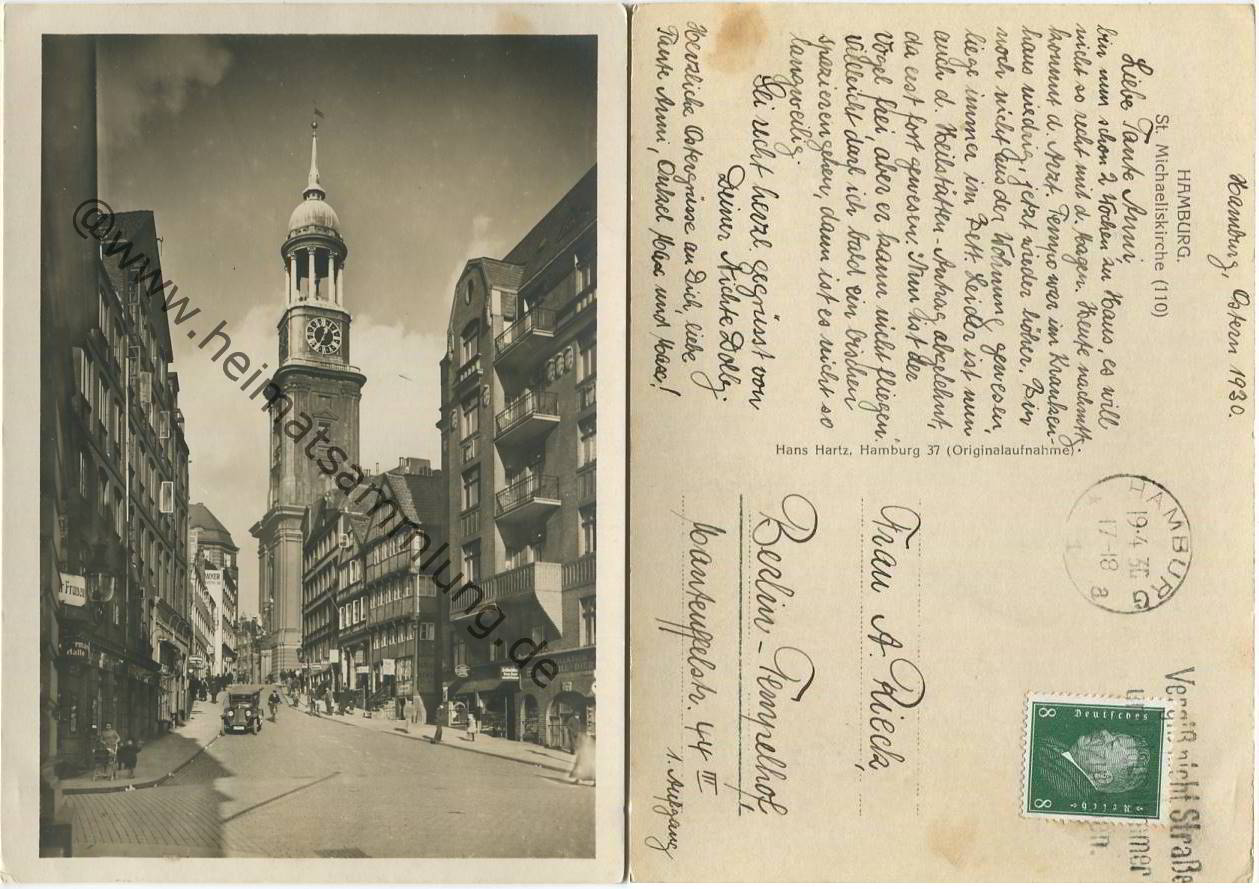 @www.heimatsammlung.de
Hamburg, Ostern 1930.
HAMBURG.
St. Michaeliskirche (110)
Liebe Tante Anni,
bin nun schon 2 Wochen zu Haus, es will
nicht so recht mit d. Magen. Heute nachmittg
kommt d. Arzt. Temp. war im Kranken-
haus niedrig, jetzt wieder höher. Bin
noch nicht aus der Wohnung gewesen,
liege immer im Bett. Leider ist nun
auch d. Heilstätten-Antrag abgelehnt,
da erst fort gewesen. Nun ist der
Vogel frei, aber er kann nicht fliegen.
Villeicht darf ich bald ein bischen
spazierengehen, dann ist es nicht so
langweilig.
Sei recht herzl. gegrüsst von
Deiner Nichte Dolly.
Herzliche Ostergrüsse an Dich, liebe
Tante Anni, Onkel Max und Mäxe!
Hans Hartz, Hamburg 37 (Originalaufnahme).
HAMBURG
19.4.30
17-18
1 a
Vergiß nicht Straße
Deutsches Reich
8 8
Frau A. Rieck,
Berlin-Tempelhof,
Manteuffelstr. 44 III
1. Aufgang